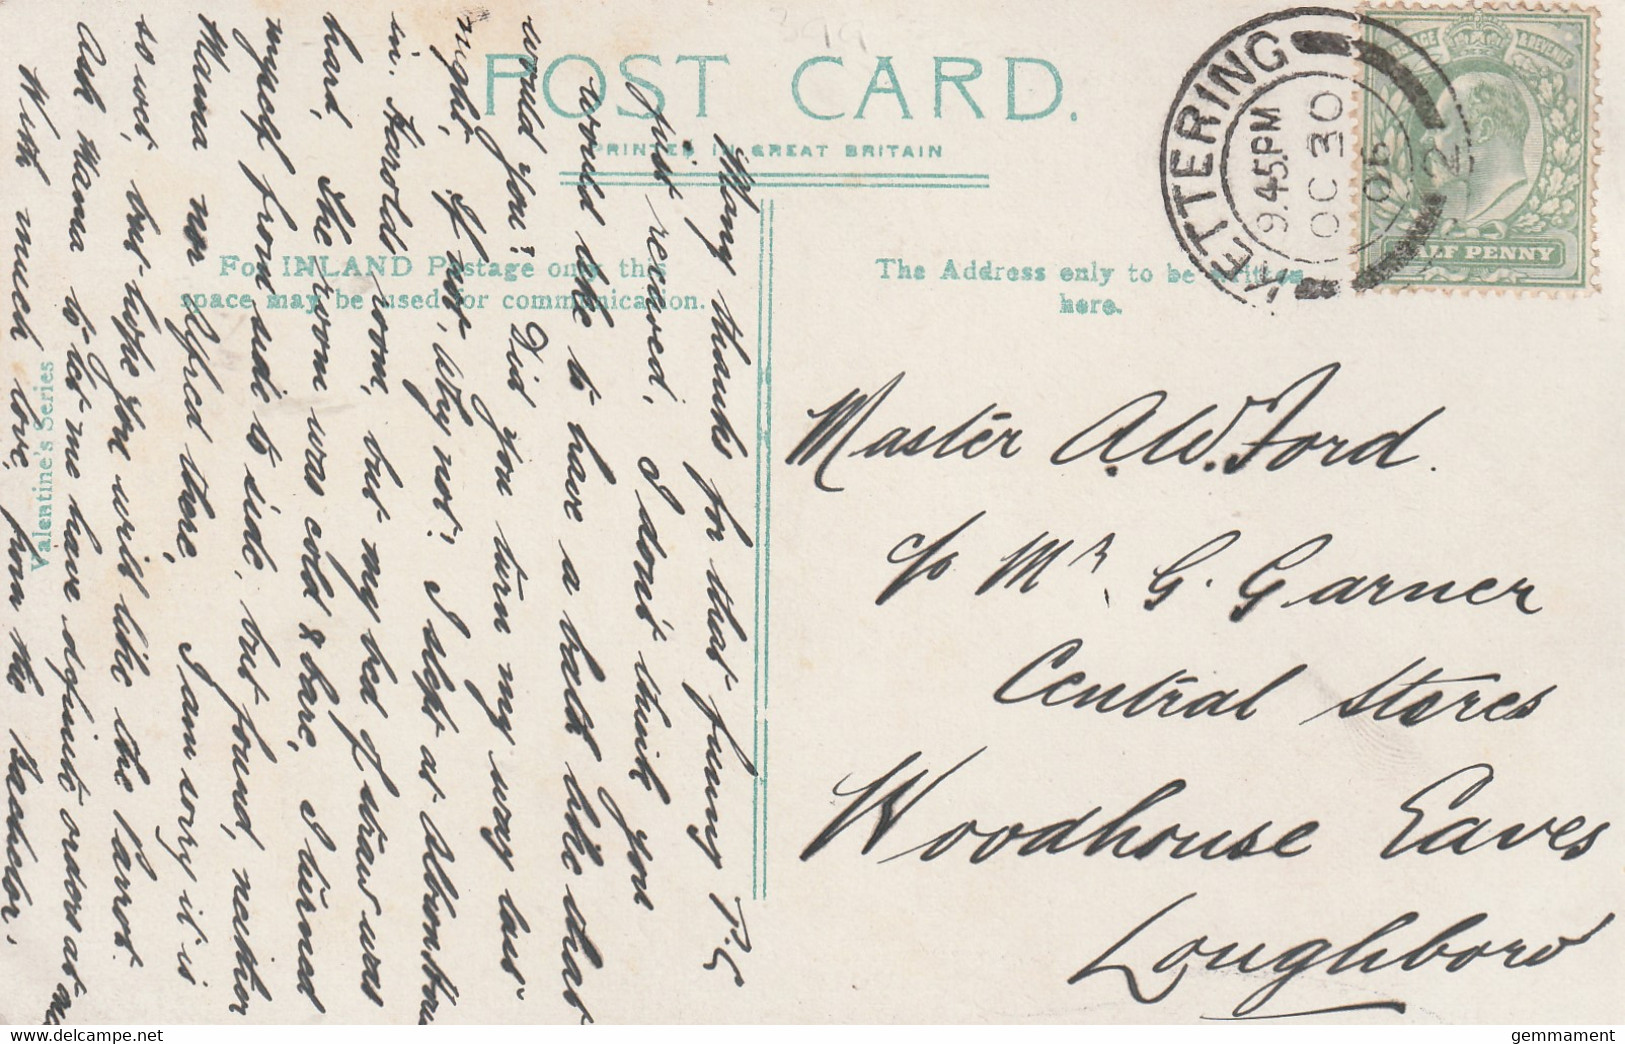 POST CARD.
PRINTED IN GREAT BRITAIN
For INLAND Postage only this
space may be used for communication.
The Address only to be written
here.
Valentine's Series
KETTERING
9.45PM
OC 30
06
2
POSTAGE & REVENUE
HALF PENNY
Many thanks for that funny P.C
just received, I don't think you
would like to have a bath like that
would you? Did you turn my way last
night, If not, Why not? I slept at
in Harolds room, but my bed of straw was
hard, The room was cold & bare, I turned
myself from side to side, but found, neither
Mama nor Alfred there, I am sorry it is
so wet, but hope you will like the Parrot.
Ask Mama to let me have definite orders as
With much love, from the Bachelor.
Master A.W. Ford.
c/o Mr G. Garner
Central Stores
Woodhouse Eaves
Loughboro
gemmament